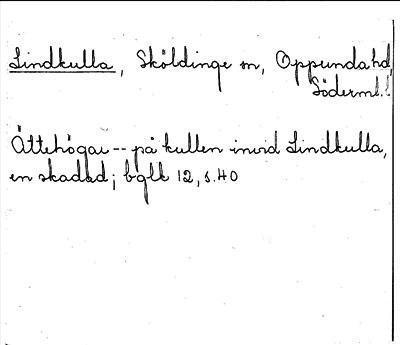 Lindkulla, Sköldinge sn, Oppunda hd,
Söderml.l.
Ättehögar -- på kullen invid Lindkulla,
en skadad; bglk 12, s.40